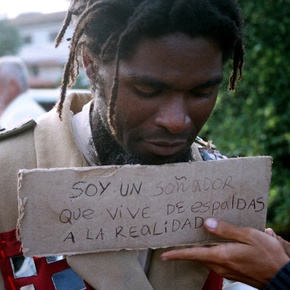 SOY UN SOÑADOR
QUE VIVE DE ESPALDAS
A LA REALIDAD